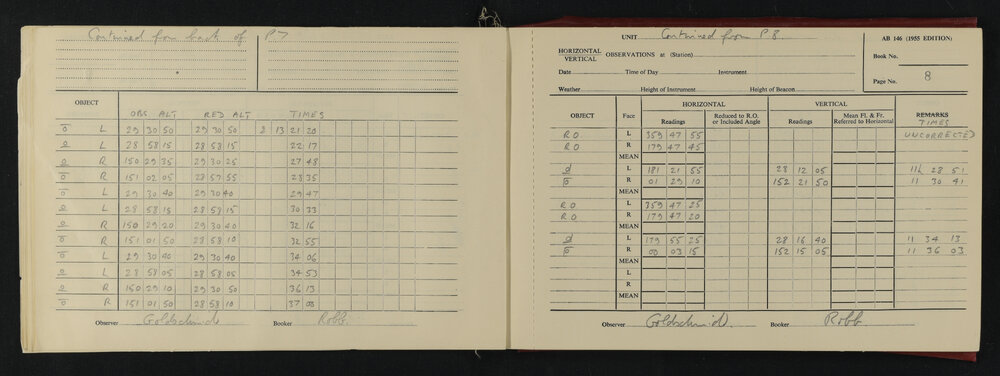 Continued from back of P7
OBJECT OBS ALT RED ALT TIMES
o̅ L 29 30 50 29 30 50 2 13 21 20
o̲ L 28 58 15 28 58 15 22 17
o̲ R 150 29 35 29 30 25 27 48
o̅ R 151 02 05 28 57 55 28 35
o̅ L 29 30 40 29 30 40 29 47
o̲ L 28 58 15 28 58 15 30 33
o̲ R 150 29 20 29 30 40 32 16
o̅ R 151 01 50 28 58 10 32 55
o̅ L 29 30 40 29 30 40 34 06
o̲ L 28 58 05 28 58 05 34 53
o̲ R 150 29 10 29 30 50 36 13
o̅ R 151 01 50 28 58 10 37 08
Observer Goldschmid Booker Robb.
UNIT Continued from P8
AB 146 (1955 EDITION)
HORIZONTAL
VERTICAL OBSERVATIONS at (Station)
Book No.
Date Time of Day Instrument
Page No. 8
Weather Height of Instrument Height of Beacon
OBJECT Face HORIZONTAL VERTICAL REMARKS
Readings Reduced to R.O. or Included Angle Readings Mean Fl. & Fr. Referred to Horizontal TIMES
RO L 359 47 55 UNCORRECTED
RO R 179 47 45
MEAN
L 181 21 55 28 12 05 11 28 51
R 01 29 10 152 21 50 11 30 41
MEAN
RO L 359 47 25
RO R 179 47 20
MEAN
L 179 55 25 28 16 40 11 34 13
R 00 03 15 152 15 05 11 36 03
MEAN
L
R
MEAN
Observer Goldschmid. Booker Robb.